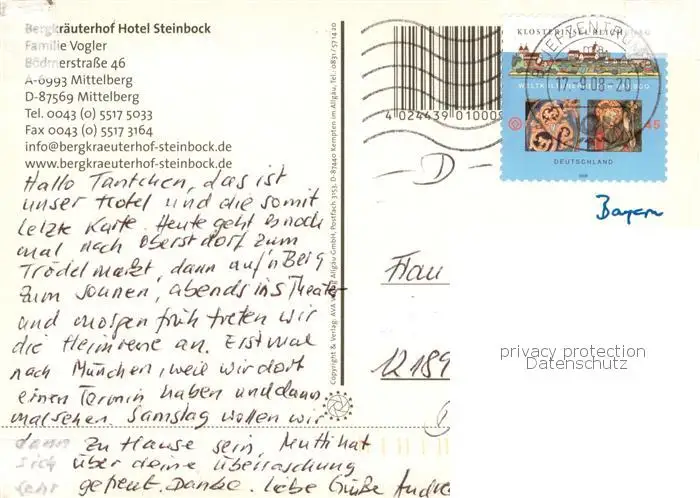 Bergkräuterhof Hotel Steinbock
Familie Vogler
Bödmerstraße 46
A-6993 Mittelberg
D-87569 Mittelberg
Tel. 0043 (0) 5517 5033
Fax 0043 (0) 5517 3164
info@bergkraeuterhof-steinbock.de
www.bergkraeuterhof-steinbock.de
Hallo Tantchen, das ist
unser Hotel und die somit
letzte Karte. Heute geht es noch
mal nach Oberstdorf zum
Trödelmarkt, dann auf'n Berg
zum sonnen, abends ins Theater
und morgen früh treten wir
die Heimreise an. Erstmal
nach München, weil wir dort
einen Termin haben und dann
mal sehen. Samstag wollen wir
dann zu Hause sein. Mutti hat
sich über deine Überraschung
sehr gefreut. Danke. Liebe Grüße Andre
Copyright & Verlag: AVA Verlag Allgäu GmbH, Postfach 3153, D-87440 Kempten im Allgäu, Tel. 0831/5714 20
4 024439 01000
KLOSTERINSEL REICHENAU
WELTKULTURERBE
45
DEUTSCHLAND
BRIEFZENTRUM
17.-9.08-20
- D -
Bayern
Frau
12189
privacy protection
Datenschutz